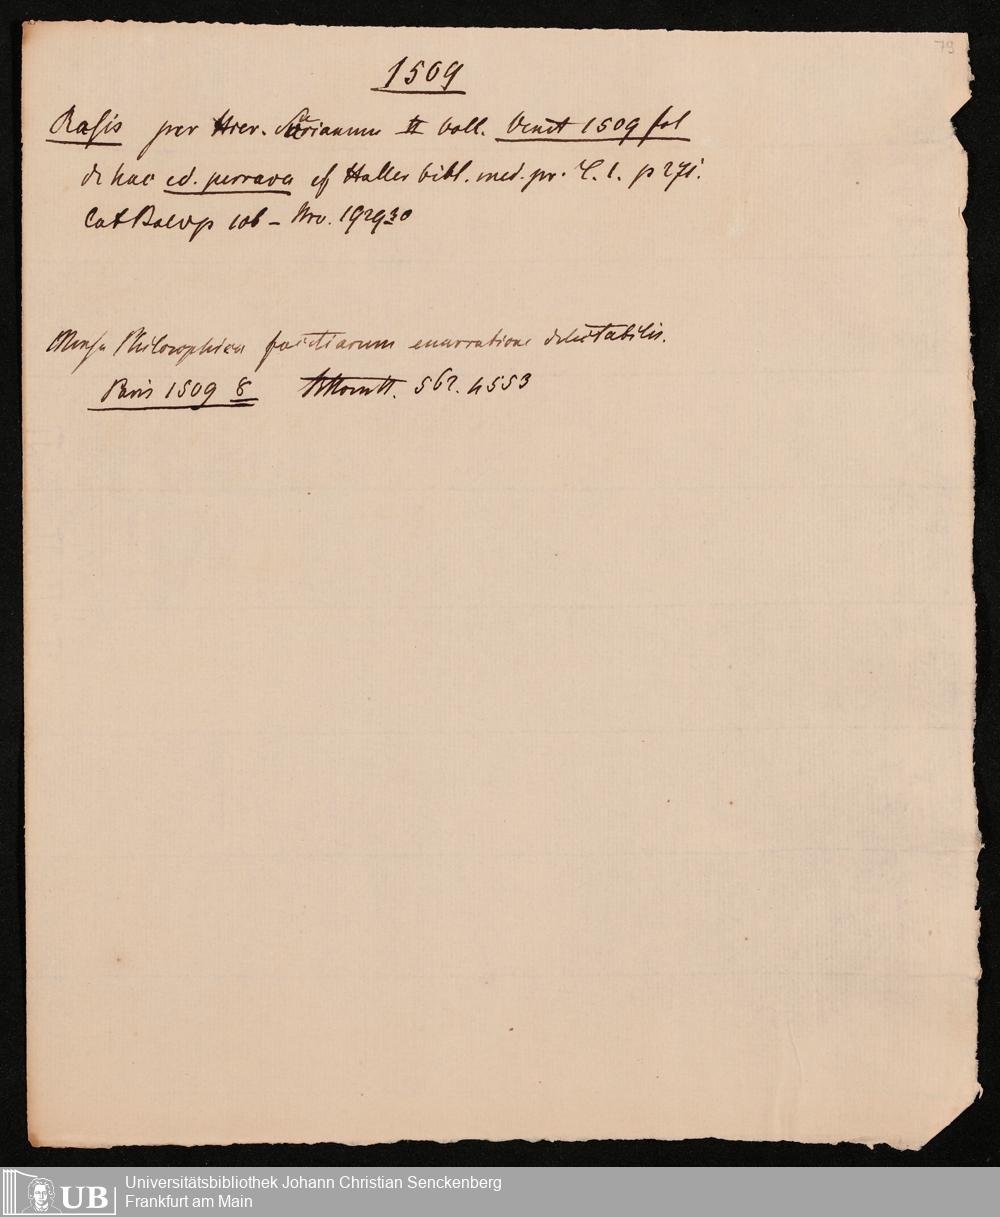 79
1509
Rasis per Hier. Surianum II Voll. Venet 1509 fol
de hac ed. perrara cf Haller bibl. med. pr. T. 1. p 271.
Cat Baluz 106 – Nro. 192930
Mensa Philosophica facetiarum enarratione delectabilis.
Paris 1509 8 562. 4553
UB Universitätsbibliothek Johann Christian Senckenberg
Frankfurt am Main